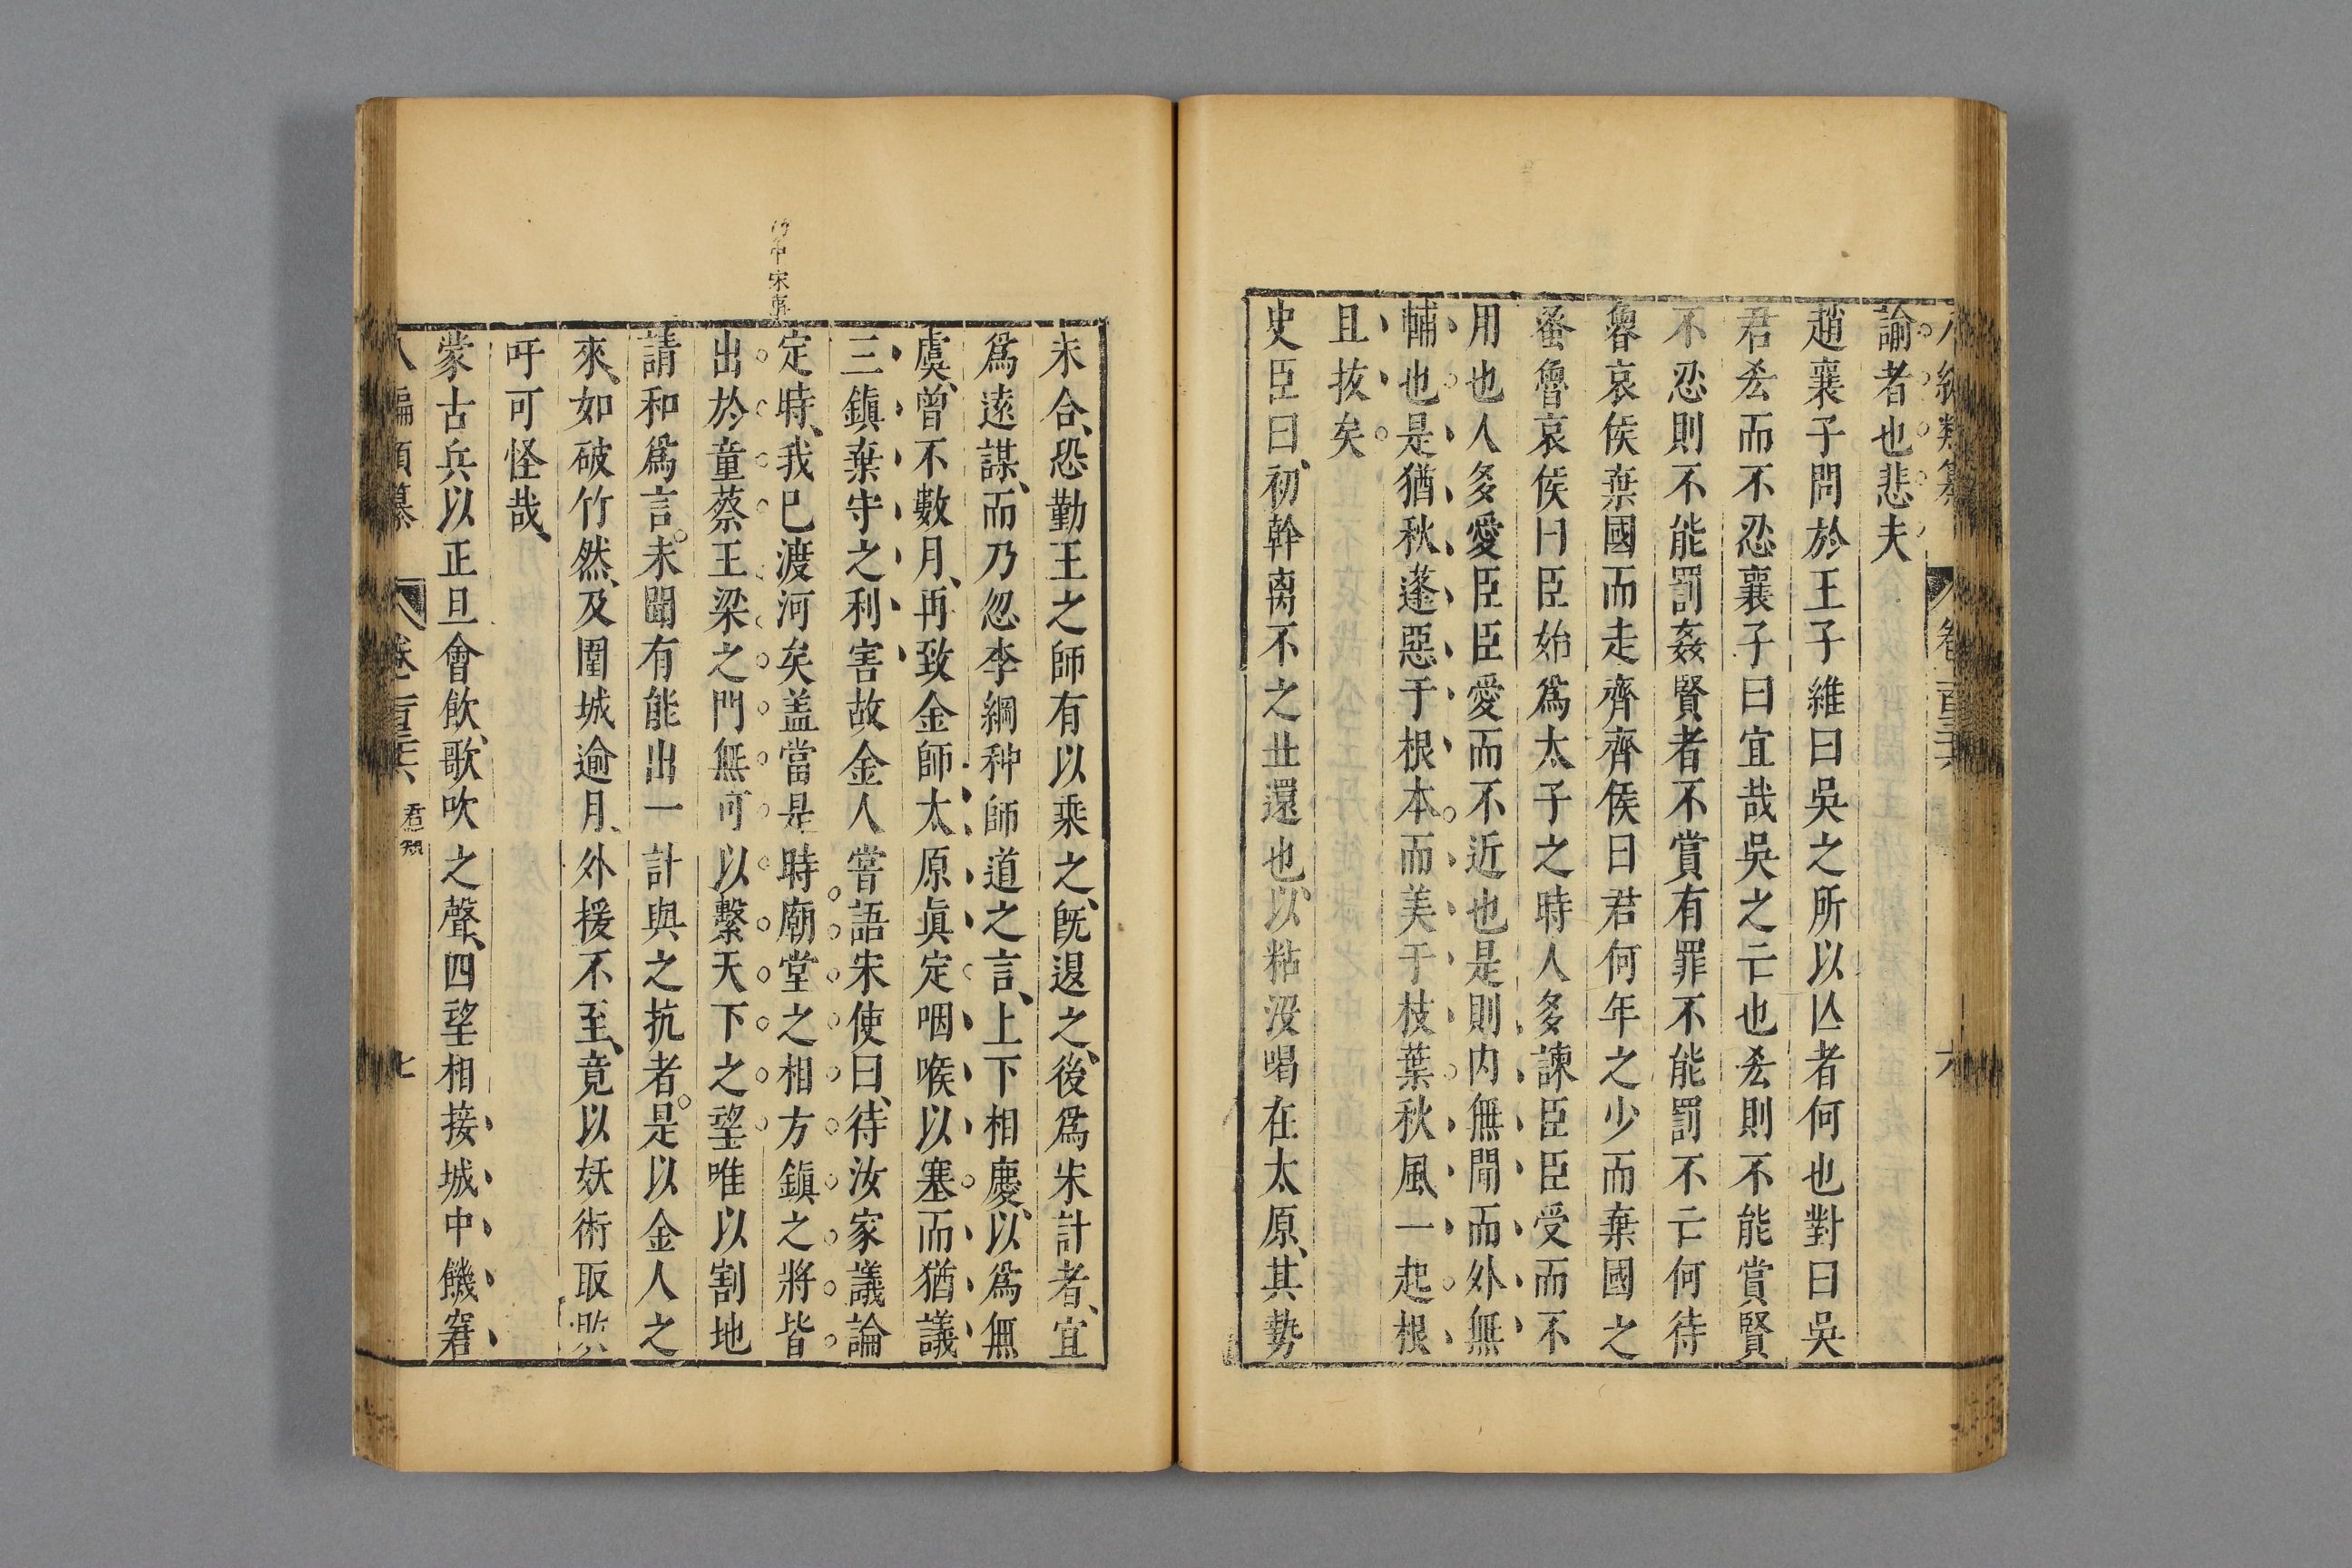 八編類纂 卷一百三十六 六
諭者也悲夫
趙襄子問於王子維曰吳之所以亾者何也對曰吳
君𠫤而不忍襄子曰宜哉吳之亡也𠫤則不能賞賢
不忍則不能罰姦賢者不賞有罪不能罰不亡何待
魯哀侯棄國而走齊齊侯曰君何年之少而棄國之
蚤魯哀侯曰臣始爲太子之時人多諫臣臣受而不
用也人多愛臣臣愛而不近也是則内無聞而外無
輔也是猶秋蓬惡于根本而美于枝葉秋風一起根
且拔矣
史臣曰初幹离不之北還也以粘没喝在太原其勢
未合恐勤王之師有以乘之旣退之後爲宋計者宜
爲遠謀而乃忽李綱种師道之言上下相慶以爲無
虞曾不數月再致金師太原眞定咽喉以塞而猶議
三鎮棄守之利害故金人嘗語宋使曰待汝家議論
定時我已渡河矣盖當是時廟堂之相方鎮之將皆
出於童蔡王梁之門無可以繫天下之望唯以割地
請和爲言未聞有能出一計與之抗者是以金人之
來如破竹然及圍城逾月外援不至竟以妖術取敗
吁可怪哉
蒙古兵以正旦會飲歌吹之聲四望相接城中饑窘
八編類纂 卷一百三十六 七